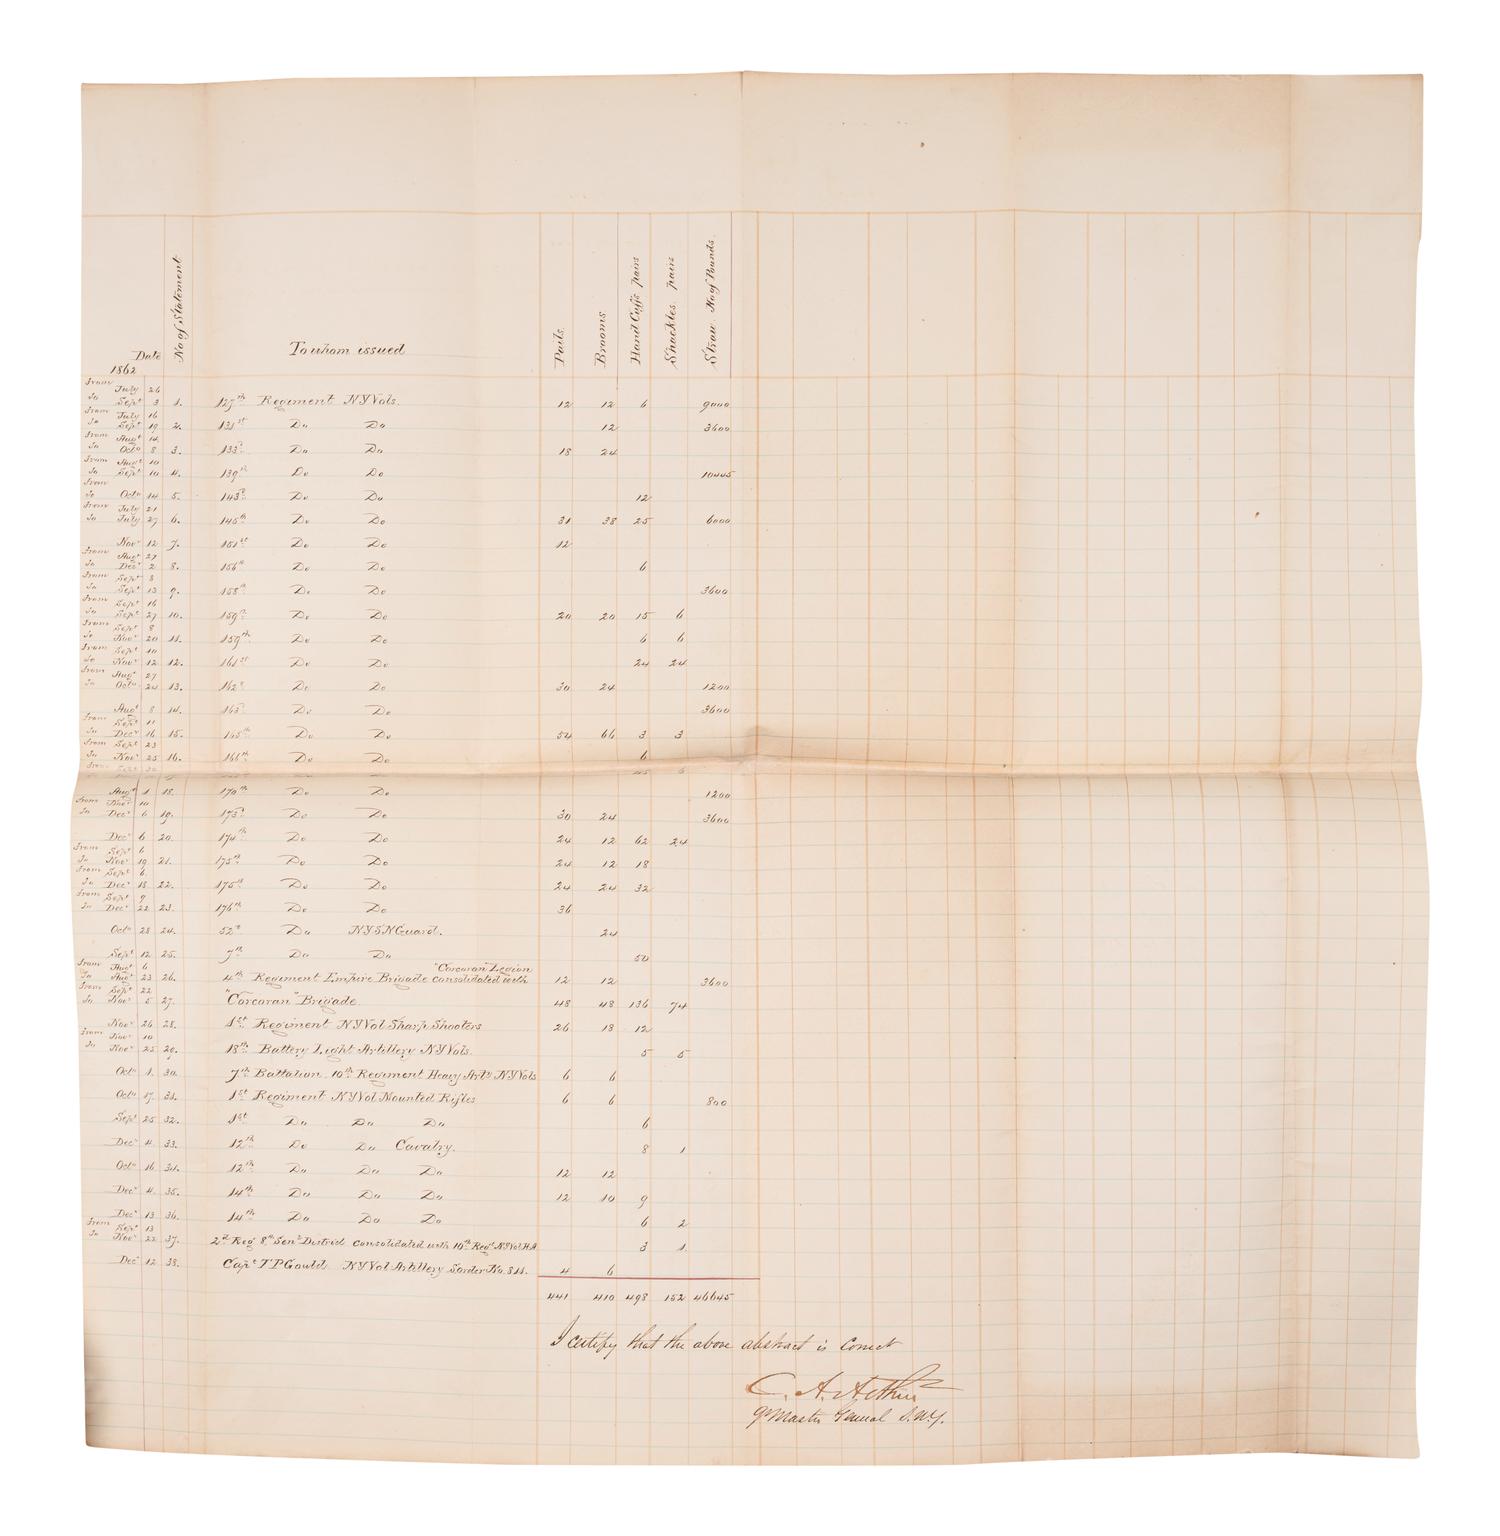 Date
1862
No of Statement
To whom issued
Pails.
Brooms
Hand Cuffs pairs
Shackles pairs
Straw. No of Pounds.
From July 26
To Sept 3 1. 127th Regiment N Y Vols. 12 12 6 9000
From July 16
To Sept 19 2. 131st Do Do 12 3600
From Augt 14
To Octo 8 3. 133d Do Do 18 24
From Augt 10
To Sept 10 4. 139th Do Do 10445
From
To Octo 14 5. 143d Do Do 12
From July 21
To July 27 6. 145th Do Do 31 38 25 6000
Novr 12 7. 151st Do Do 12
From Augt 27
To Decr 2 8. 156th Do Do 6
From Sept 8
To Sept 13 9. 158th Do Do 3600
From Sept 16
To Sept 27 10. 159th Do Do 20 20 15 6
From Sept 8
To Novr 20 11. 159th Do Do 6 6
From Sept 10
To Novr 12 12. 161st Do Do 24 24
From Augt 27
To Octo 24 13. 162d Do Do 30 24 1200
Augt 8 14. 163d Do Do 3600
From Sept 11
To Decr 16 15. 165th Do Do 54 66 3 3
From Sept 23
To Novr 25 16. 166th Do Do 6
From Sept
Augt 1 18. 170th Do Do 1200
From Novr 10
To Decr 6 19. 173d Do Do 30 24 3600
Decr 6 20. 174th Do Do 24 12 62 24
From Sept 6
To Novr 19 21. 175th Do Do 24 12 18
From Sept 6.
To Decr 18 22. 175th Do Do 24 24 32
From Sept 9
To Decr 22 23. 176th Do Do 36
Octo 28 24. 52d Do N Y S N Guard. 24
Sept 12 25. 7th Do Do 50
From Augt 6 "Corcoran Legion
To Augt 23 26. 4th Regiment Empire Brigade consolidated with 12 12 3600
From Sept 22
To Novr 5 27. "Corcoran" Brigade 48 48 136 74
Novr 26 28. 1st Regiment N Y Vol Sharp Shooters 26 18 12
From Novr 10
To Novr 25 29. 18th Battery Light Artillery N Y Vols. 5 5
Octo 1. 30. 7th Battalion 10th Regiment Heavy Arty N Y Vols 6 6
Octo 17. 31. 1st Regiment N Y Vol Mounted Rifles 6 6 800
Sept 25 32. 1st Do Do Do 6
Decr 4. 33. 12th Do Do Cavalry. 8 1
Octo 16 34. 12th Do Do Do 12 12
Decr 4. 35. 14th Do Do Do 12 10 9
Decr 13 36. 14th Do Do Do 6 2
From Sept 13
To Novr 22 37. 2d Reg 8th Senl District consolidated with 10th Regt N Y Vol H A 3 1.
Decr 12 38. Capt T P Gould N Y Vol Artillery S order No. 814. 4 6
441 410 498 152 46645
I certify that the above abstract is correct
C. A. Arthur
Qr Master General S. N. Y.